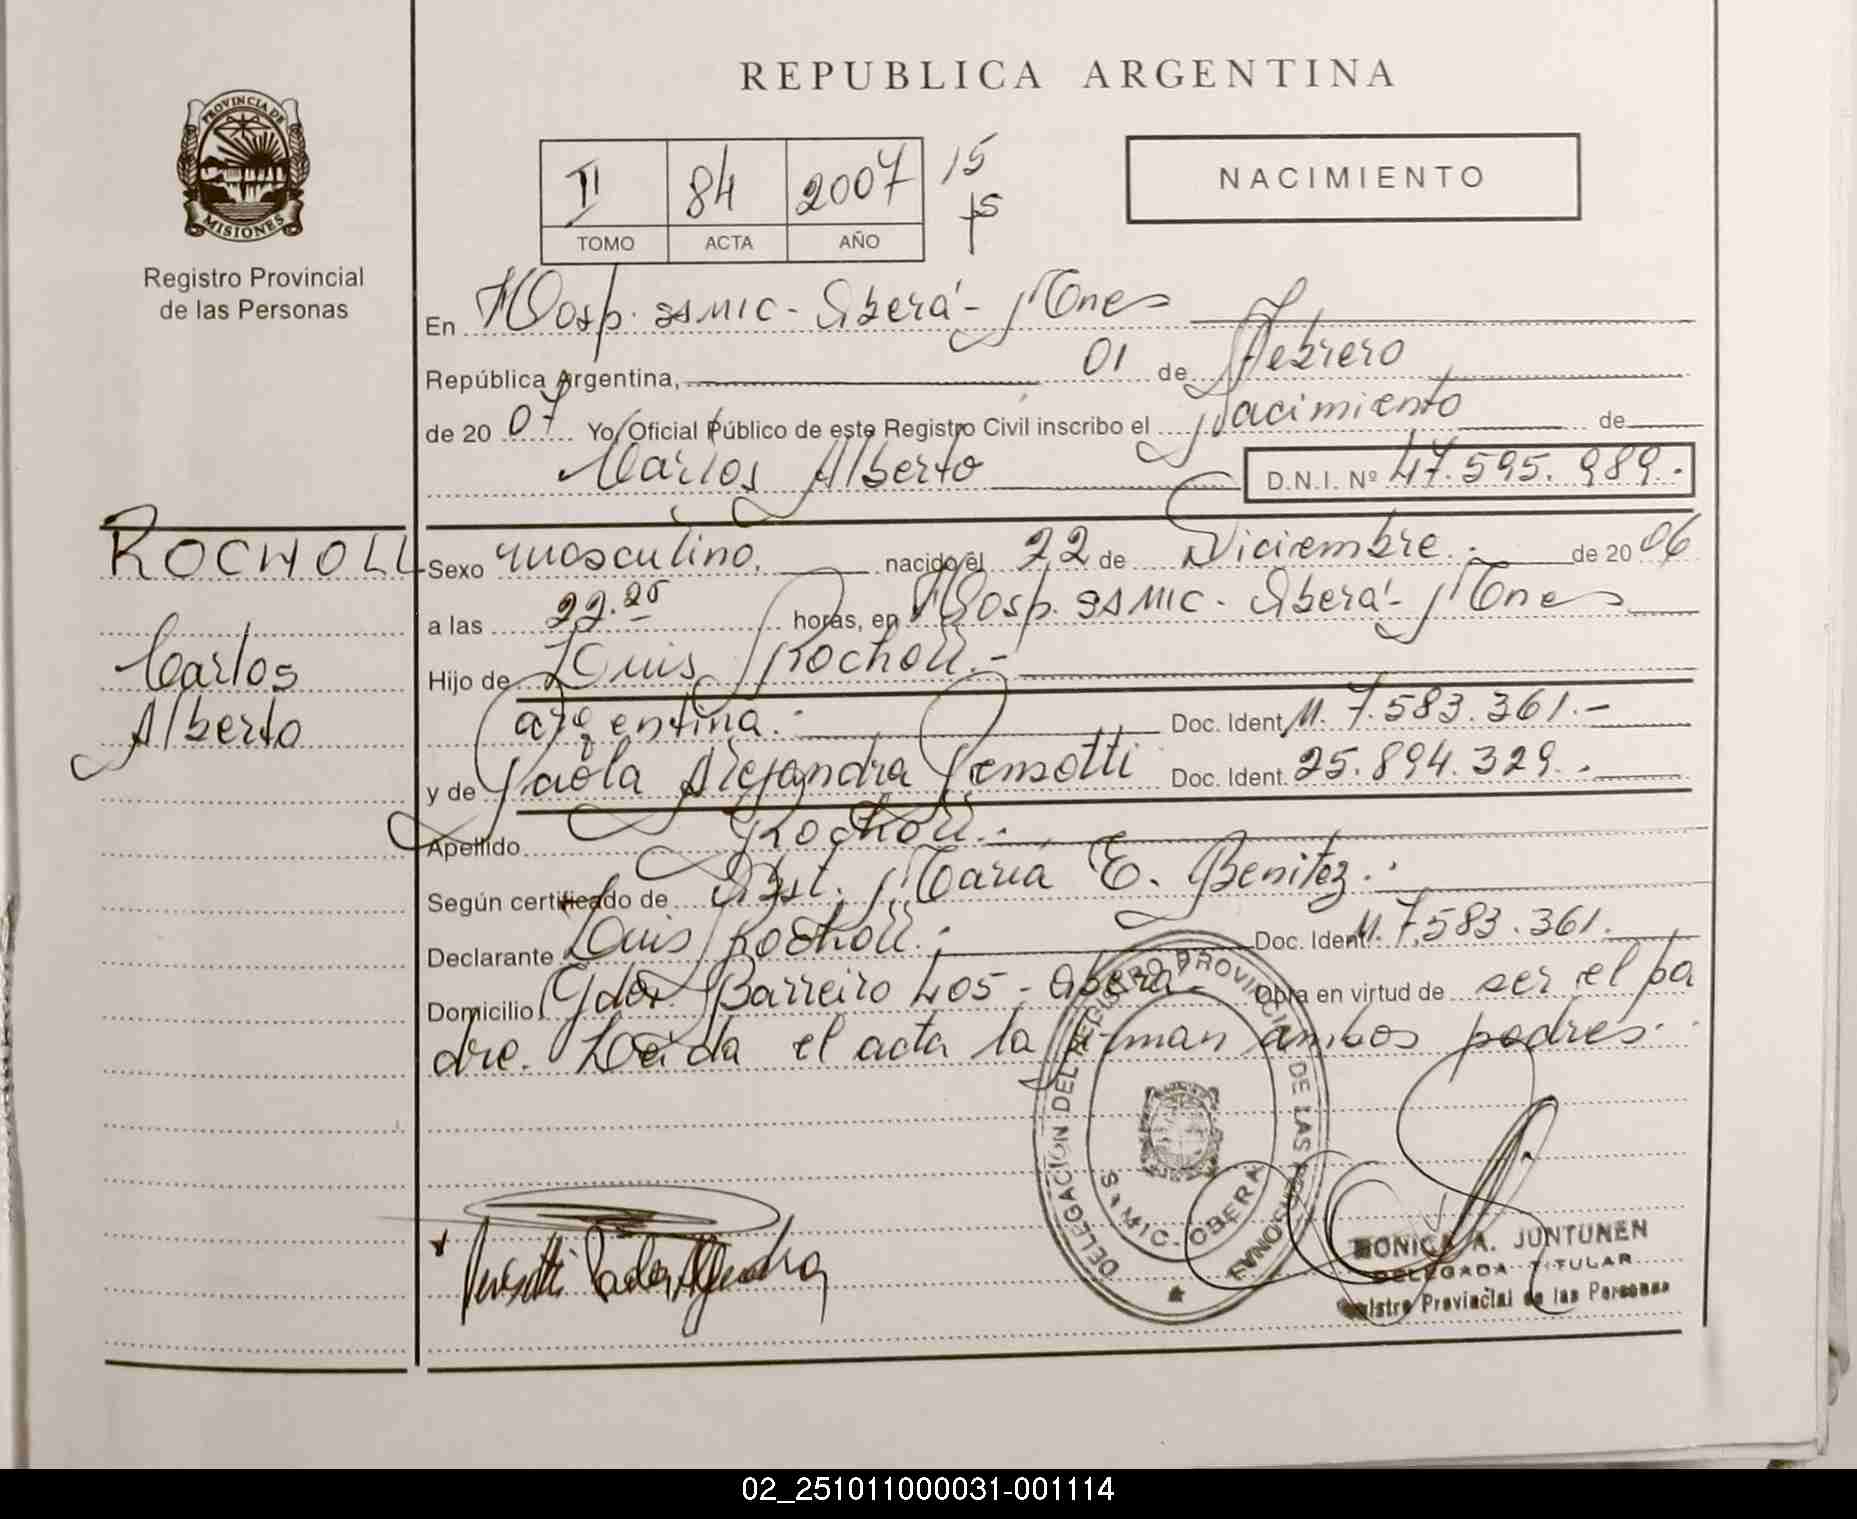 REPUBLICA ARGENTINA
PROVINCIA DE
MISIONES
Registro Provincial
de las Personas
II 84 2007 15
15
TOMO ACTA AÑO
NACIMIENTO
En Hosp. SAMIC - Oberá - Mnes
República Argentina, 01 de Febrero
de 2007 Yo, Oficial Público de este Registro Civil inscribo el Nacimiento de
Carlos Alberto D.N.I. Nº 47.595.989.-
ROCHOLL
Carlos
Alberto
Sexo masculino. nacido el 22 de Diciembre.- de 2006
a las 22.25 horas, en Hosp. SAMIC - Oberá - Mnes
Hijo de Luis Rocholl.-
argentina.- Doc. Ident. M. 7.583.361.-
y de Paola Alejandra Pensotti Doc. Ident. 25.894.329.-
Apellido Rocholl.-
Según certificado de Obst. María E. Benitez.-
Declarante Luis Rocholl.- Doc. Ident. M. 7.583.361.
Domicilio Gdor. Barreiro 405 - Oberá - Obra en virtud de ser el pa
dre. Leída el acta la firman ambos padres.-
DELEGACIÓN DEL REGISTRO PROVINCIAL DE LAS PERSONAS
SAMIC - OBERA
Pensotti Paola Alejandra
MONICA A. JUNTUNEN
DELEGADA TITULAR
Registro Provincial de las Personas
02_251011000031-001114